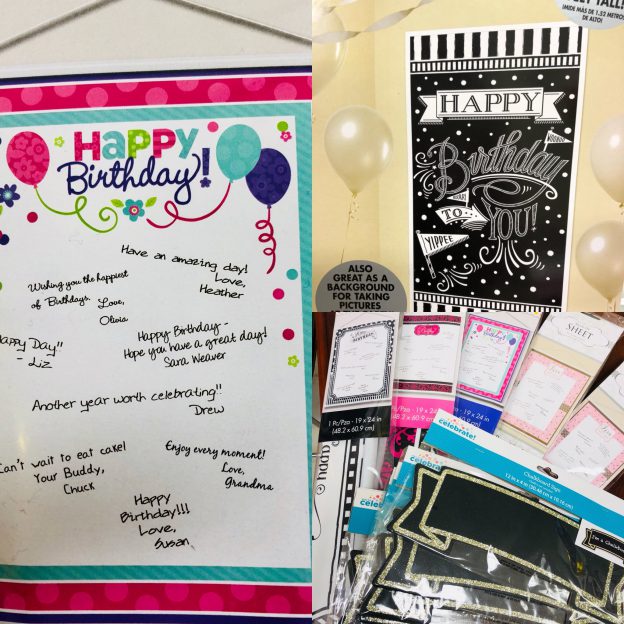 HaPPY
Birthday!
Have an amazing day!
Love,
Heather
Wishing you the happiest
of Birthdays.
Love,
Olivia
Happy Day"
- Liz
Happy Birthday -
Hope you have a great day!
Sara Weaver
Another year worth celebrating"
Drew
Can't wait to eat cake!
Your Buddy,
Chuck
Enjoy every moment!
Love,
Grandma
Happy
Birthday!!!
Love,
Susan
TALL!
(¡MIDE MÁS DE 1.52 METROS
DE ALTO!)
HAPPY
Birthday
TO
YOU!
YIPPEE
ALSO
GREAT AS A
BACKGROUND
FOR TAKING
PICTURES
SHEET
1 Pc/Pza · 19 x 24 in
(48.2 x 60.9 cm)
1 Pc/Pza · 19 x 24 in
(48.2 x 60.9 cm)
19 x 24 in
x 60.9 cm)
celebrate!
Chalkboard Sign
12 in x 4 in (30.48 cm x 10.16 cm)
I'm a Chalkboard